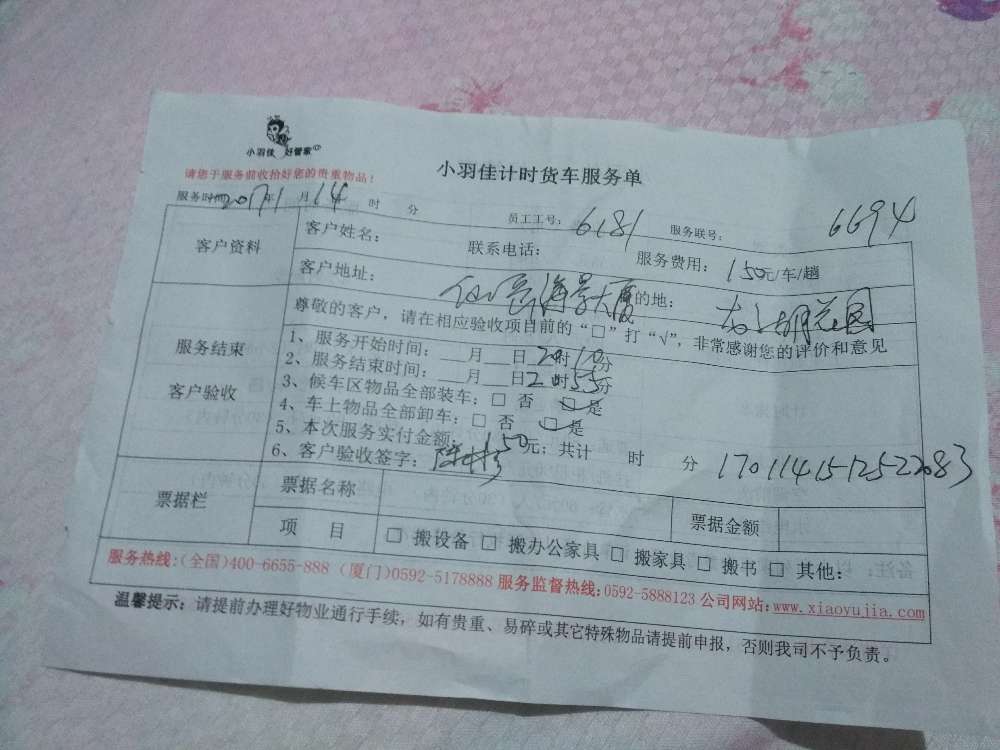 小羽佳 好管家
小羽佳计时货车服务单
请您于服务前收拾好您的贵重物品！
服务时间2017年1月14 时 分 员工工号：6181 服务联号：6694
客户资料
客户姓名： 联系电话： 服务费用：150元/车/趟
客户地址：海景大厦 目的地：花园
服务结束
客户验收
尊敬的客户，请在相应验收项目前的“□”打“√”，非常感谢您的评价和意见
1、服务开始时间：___月___日2时10分
2、服务结束时间：___月___日2时55分
3、候车区物品全部装车：□ 否 □是
4、车上物品全部卸车：□ 否 □是
5、本次服务实付金额：150元；共计 时 分
6、客户验收签字：陈
票据栏
票据名称 票据金额
项 目 □ 搬设备 □ 搬办公家具 □ 搬家具 □ 搬书 □ 其他：
服务热线:(全国)400-6655-888 (厦门)0592-5178888 服务监督热线:0592-5888123 公司网站:www.xiaoyujia.com
温馨提示：请提前办理好物业通行手续，如有贵重、易碎或其它特殊物品请提前申报，否则我司不予负责。